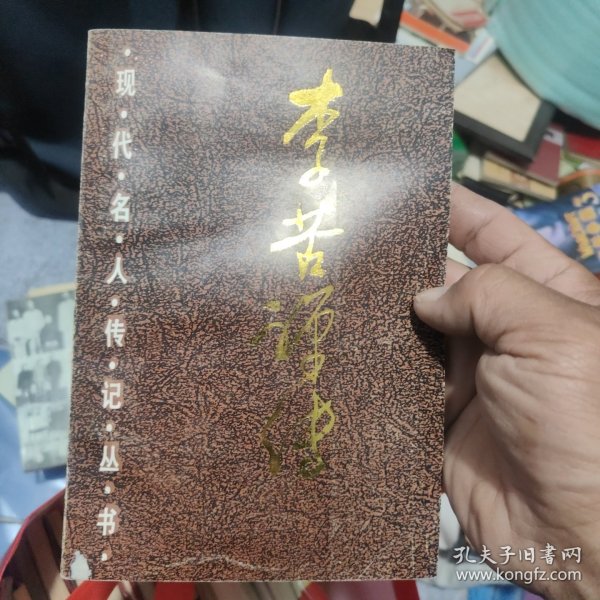 ·现·代·名·人·传·记·丛·书·
李苦禅传
孔夫子旧书网
www.kongfz.com